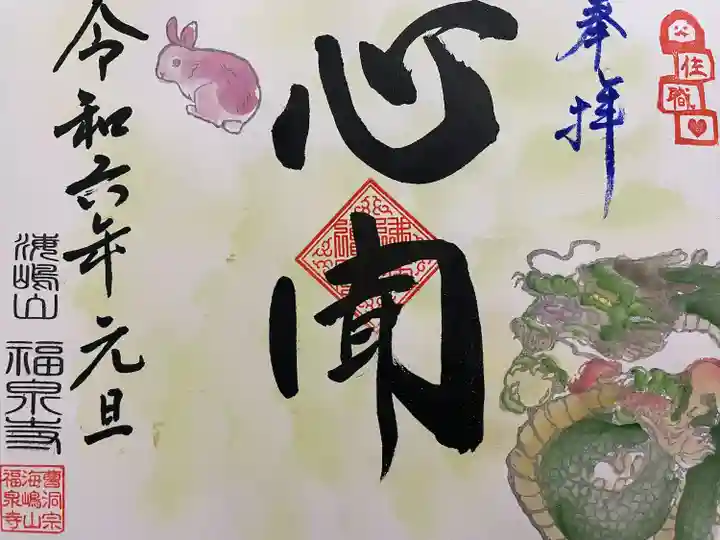 奉拝
住職
心聞
令和六年元旦
海嶋山
福泉寺
曹洞宗
海嶋山
福泉寺